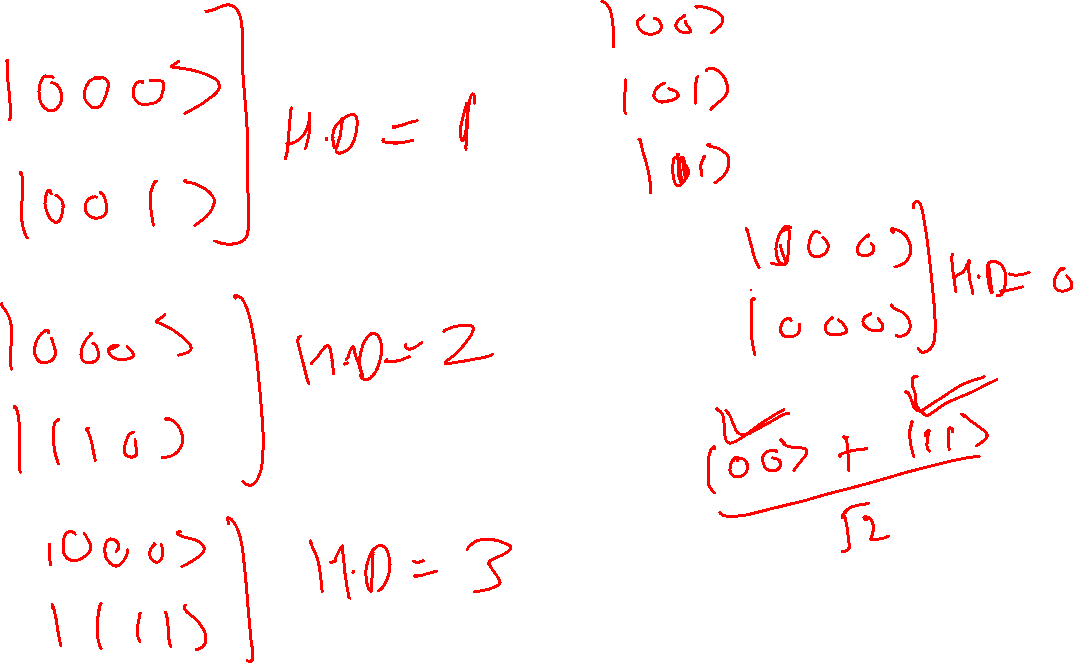 |000⟩
|001⟩
H.D = 1
|000⟩
|110⟩
H.D = 2
|000⟩
|111⟩
H.D = 3
|00⟩
|01⟩
|01⟩
|000⟩
|000⟩
H.D = 0
|00⟩ + |11⟩
√2